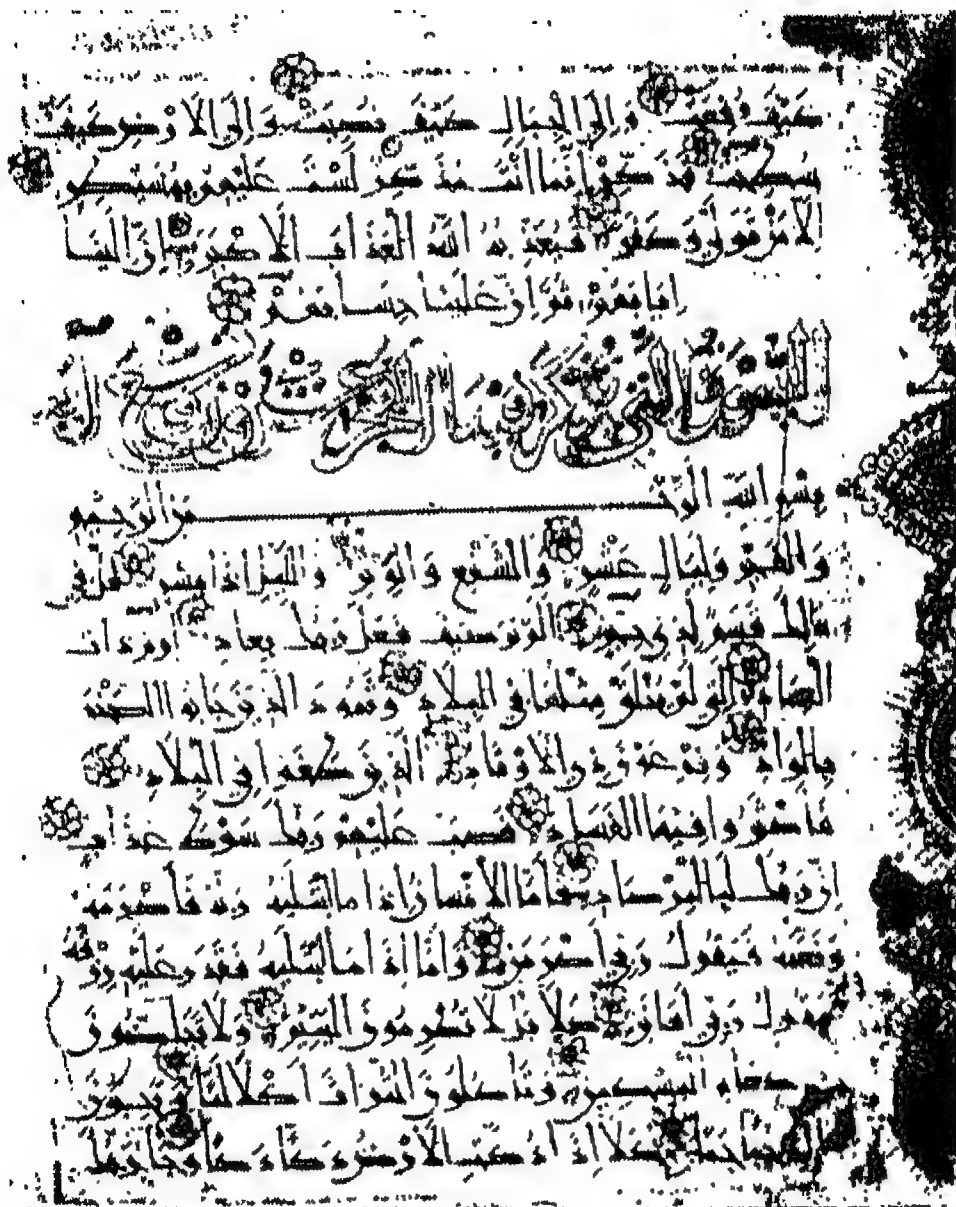 كَيْفَ رُفِعَتْ وَإِلَى الْجِبَالِ كَيْفَ نُصِبَتْ وَإِلَى الْأَرْضِ كَيْفَ
سُطِحَتْ فَذَكِّرْ إِنَّمَا أَنْتَ مُذَكِّرٌ لَسْتَ عَلَيْهِمْ بِمُسَيْطِرٍ
إِلَّا مَنْ تَوَلَّى وَكَفَرَ فَيُعَذِّبُهُ اللَّهُ الْعَذَابَ الْأَكْبَرَ إِنَّ إِلَيْنَا
إِيَابَهُمْ ثُمَّ إِنَّ عَلَيْنَا حِسَابَهُمْ
السورة التي يذكر فيها الفجر
بِسْمِ اللَّهِ الرَّحْمَنِ الرَّحِيمِ
وَالْفَجْرِ وَلَيَالٍ عَشْرٍ وَالشَّفْعِ وَالْوَتْرِ وَاللَّيْلِ إِذَا يَسْرِ هَلْ فِي
ذَلِكَ قَسَمٌ لِذِي حِجْرٍ أَلَمْ تَرَ كَيْفَ فَعَلَ رَبُّكَ بِعَادٍ إِرَمَ ذَاتِ
الْعِمَادِ الَّتِي لَمْ يُخْلَقْ مِثْلُهَا فِي الْبِلَادِ وَثَمُودَ الَّذِينَ جَابُوا الصَّخْرَ
بِالْوَادِ وَفِرْعَوْنَ ذِي الْأَوْتَادِ الَّذِينَ طَغَوْا فِي الْبِلَادِ
فَأَكْثَرُوا فِيهَا الْفَسَادَ فَصَبَّ عَلَيْهِمْ رَبُّكَ سَوْطَ عَذَابٍ
إِنَّ رَبَّكَ لَبِالْمِرْصَادِ فَأَمَّا الْإِنْسَانُ إِذَا مَا ابْتَلَيهُ رَبُّهُ فَأَكْرَمَهُ
وَنَعَّمَهُ فَيَقُولُ رَبِّي أَكْرَمَنِ وَأَمَّا إِذَا مَا ابْتَلَيهُ فَقَدَرَ عَلَيْهِ رِزْقَهُ
فَيَقُولُ رَبِّي أَهَانَنِ كَلَّا بَلْ لَا تُكْرِمُونَ الْيَتِيمَ وَلَا تَحَاضُّونَ
عَلَى طَعَامِ الْمِسْكِينِ وَتَأْكُلُونَ التُّرَاثَ أَكْلًا لَمًّا وَتُحِبُّونَ
الْمَالَ حُبًّا جَمًّا كَلَّا إِذَا دُكَّتِ الْأَرْضُ دَكًّا دَكًّا وَجَاءَ رَبُّكَ